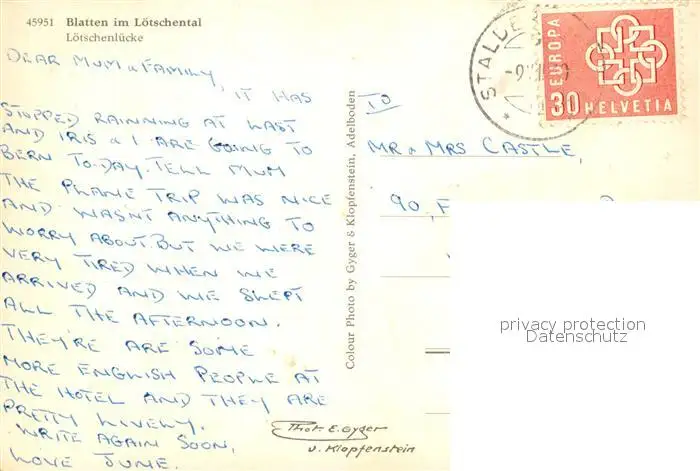 45951 Blatten im Lötschental
Lötschenlücke
DEAR MUM & FAMILY, IT HAS
STOPPED RAINNING AT LAST
AND IRIS & I ARE GOING TO
BERN TO-DAY. TELL MUM
THE PLANE TRIP WAS NICE
AND WASNT ANYTHING TO
WORRY ABOUT. BUT WE WERE
VERY TIRED WHEN WE
ARRIVED AND WE SLEPT
ALL THE AFTERNOON.
THEY'RE ARE SOME
MORE ENGLISH PEOPLE AT
THE HOTEL AND THEY ARE
PRETTY LIVELY.
WRITE AGAIN SOON,
LOVE JUNE.
Colour Photo by Gyger & Klopfenstein, Adelboden
Phot. E. Gyger
u. Klopfenstein
STALDE
EUROPA
30 HELVETIA
TO
MR & MRS CASTLE,
90, F
privacy protection
Datenschutz